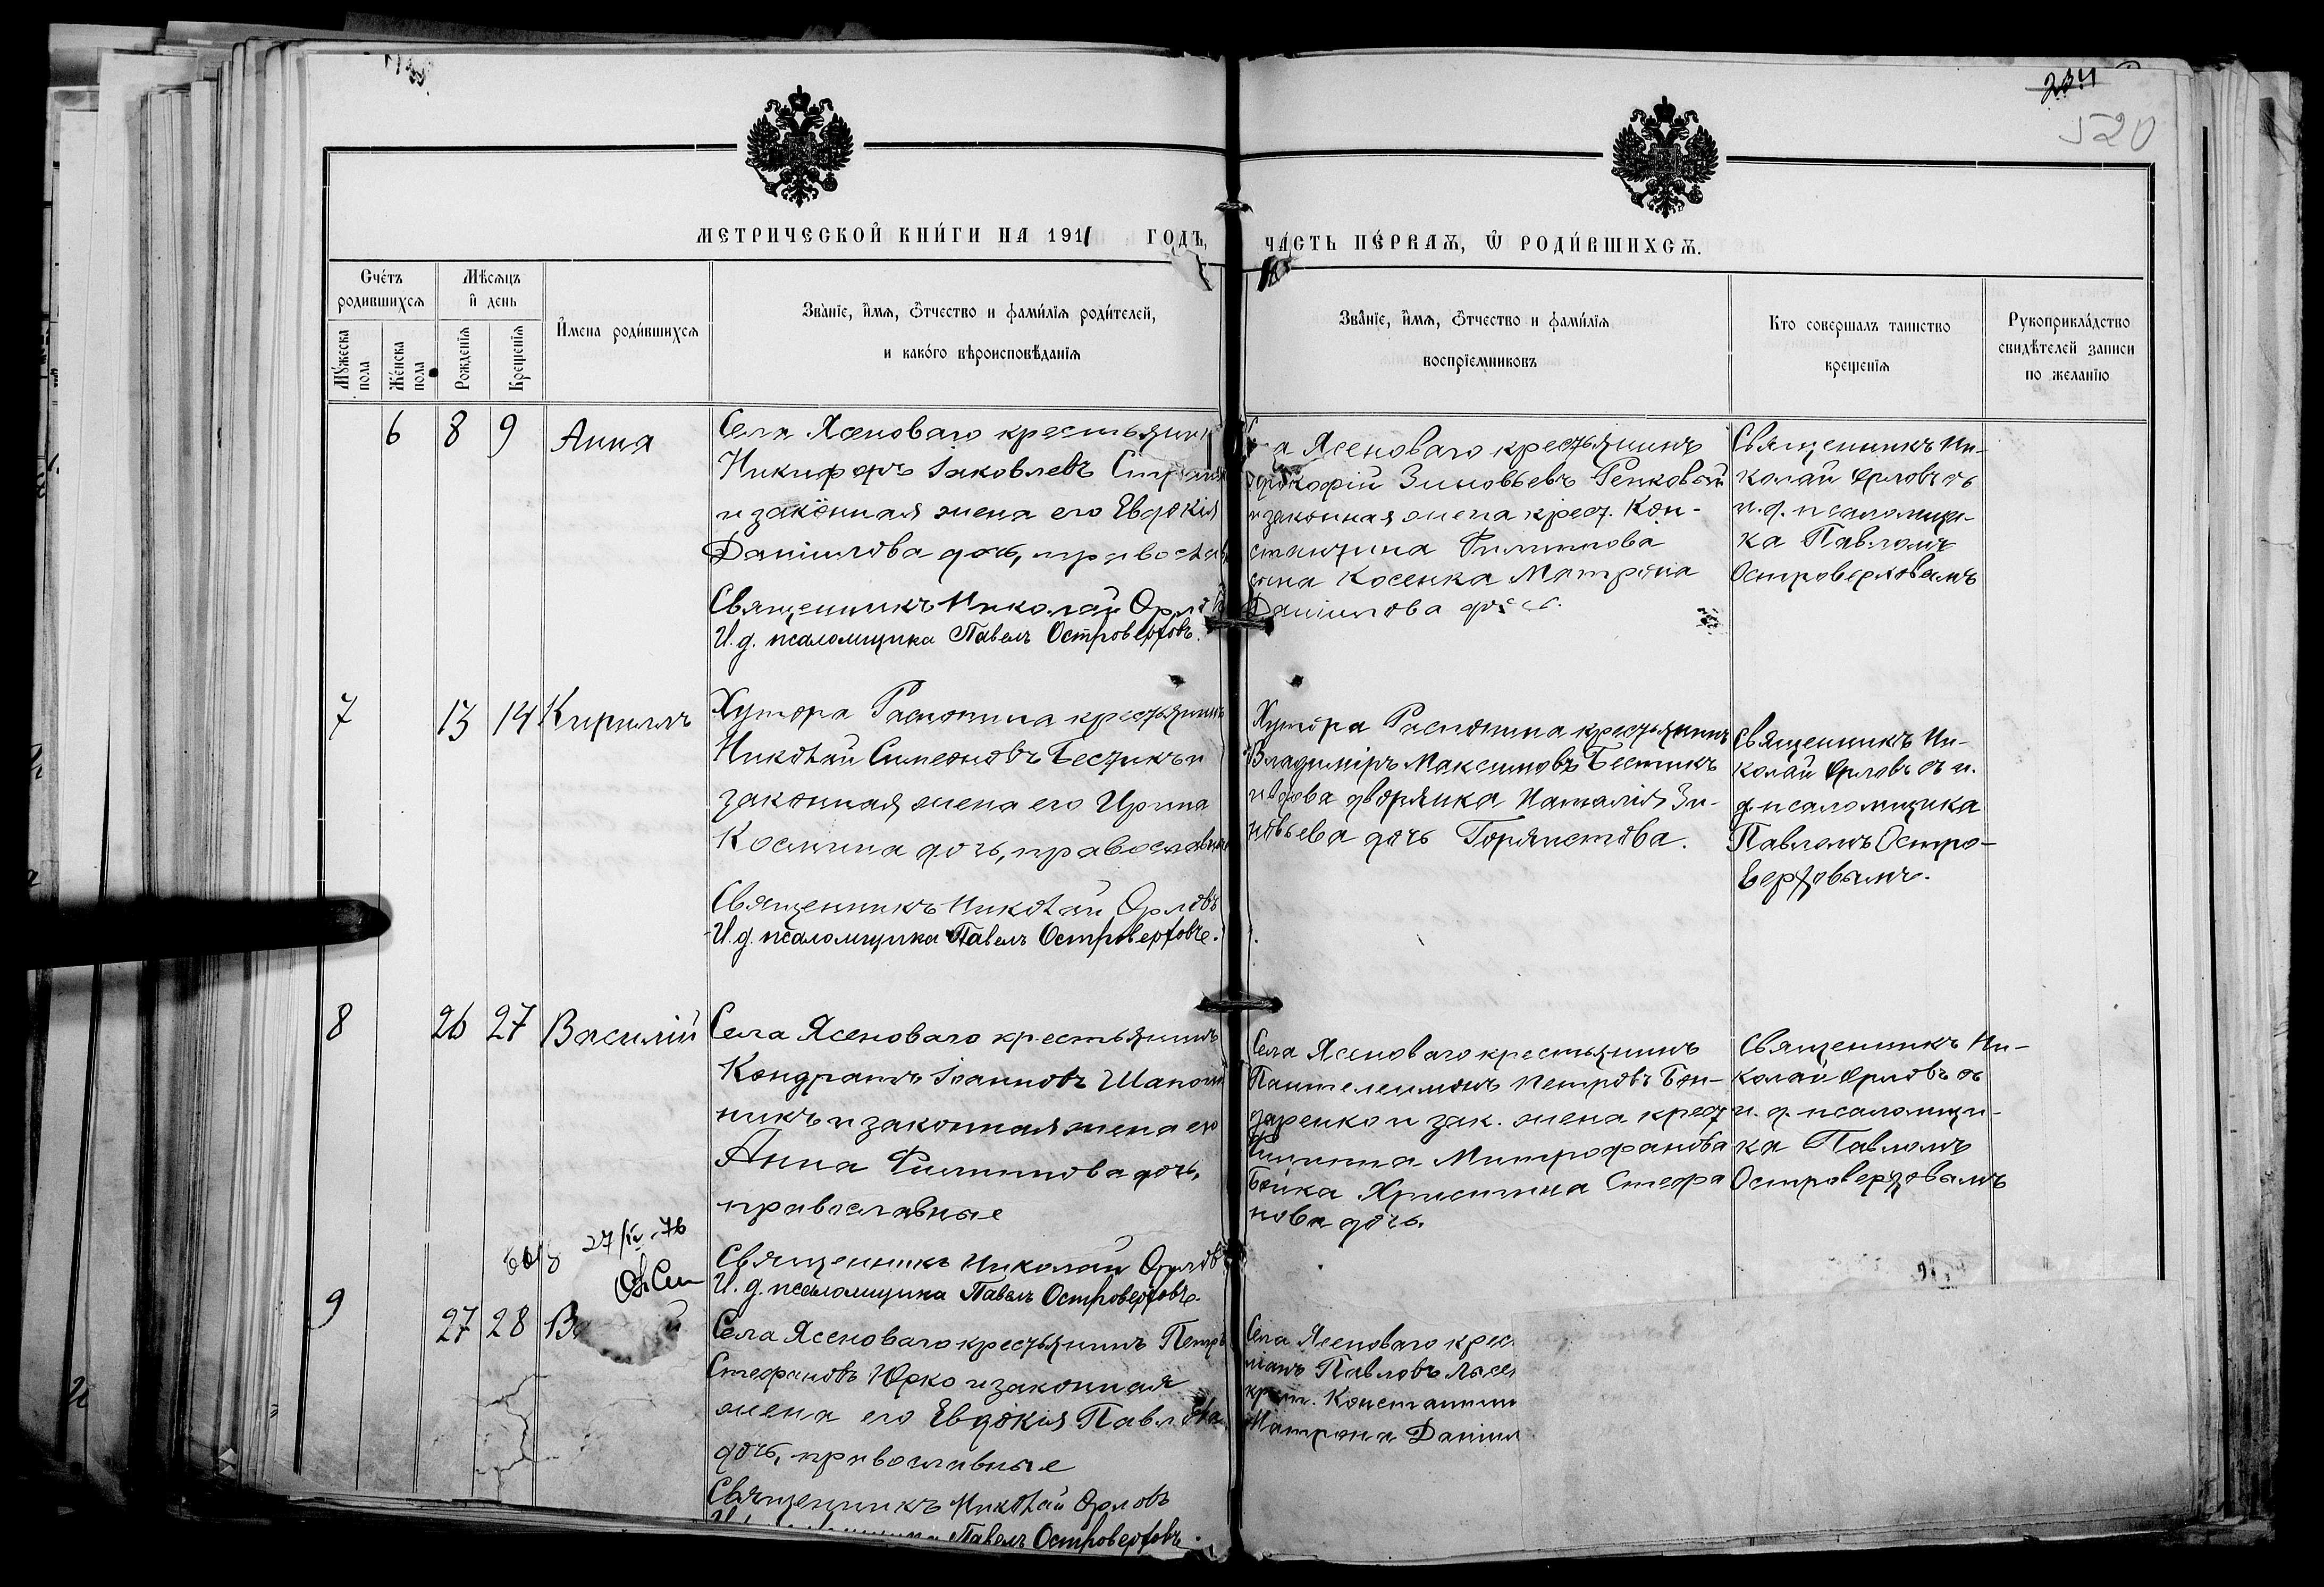 234
520
МЕТРИЧЕСКОЙ КНИ́ГИ НА 1911 ГОДЪ,
ЧА́СТЬ ПЕ́РВАѦ, Ѡ҆ РОДИ́ВШИХСѦ.
Сче́тъ родившихсѧ
Мѣсѧцъ и҆ день
И҆мена роди́вшихсѧ
Зва́нїе, и҆мѧ, ѻ҆тчество и фами́лїѧ роди́телей,
и како́го вѣроисповѣ́данїѧ
Мꙋ́жеска пола
Же́нска пола
Рожденїѧ
Крещенїѧ
Зва́нїе, и҆мѧ, ѻ҆тчество и фами́лїѧ
воспрїемниковъ
Кто совершалъ таинство
крещенїѧ
Рукоприкла́дство
свидѣ́телей записи
по желанїю
6 8 9 Анна
Села Ясеноваго крестьянинъ
Никифоръ Іаковлевъ
и законная жена его Евдокія
Даніилова дочь,
Священникъ Николай Орловъ
И. д. псаломщика Павелъ Островерховъ.
Ясеноваго крестьянинъ
Прокофій Зиновьевъ
и законная жена крест. Кон-
стантина Филиппова
сына Косенка Матрона
Даніилова дочь.
Священникъ Ни-
колай Орловъ съ
и. д. псаломщи-
ка Павломъ
Островерховымъ
7 13 14 Кириллъ
Хутора крестьянинъ
Николай Симеоновъ Бестикъ и
законная жена его Ирина
Космина дочь, православные
Священникъ Николай Орловъ
И. д. псаломщика Павелъ Островерховъ.
Хутора крестьянинъ
Владиміръ Максимовъ Бестикъ
и вдова дворянка Наталія Зи-
новьева дочь
Священникъ Ни-
колай Орловъ съ и.
д. псаломщика
Павломъ Остро-
верховымъ.
8 26 27 Василій
Села Ясеноваго крестьянинъ
Кондратъ Іоанновъ Шапош
никъ и законная жена его
Анна Филиппова дочь,
православные
Священникъ Николай Орловъ
И. д. псаломщика Павелъ Островерховъ.
Села Ясеноваго крестьянинъ
Пантелеимонъ Петровъ Бон-
даренко и зак. жена крест
Филиппа Митрофанова
Бойка Христина Стефа
нова дочь.
Священникъ Ни-
колай Орловъ съ
и. д. псаломщи-
ка Павломъ
Островерховымъ
9 27 28
Села Ясеноваго крестьянинъ Петръ
Стефановъ Юрко и законная
жена его Евдокія Павлова
дочь, православные
Священникъ Николай Орловъ
Павелъ Островерховъ.
Села Ясеноваго крес
Павловъ
крест. Константин
Матрона Даніил